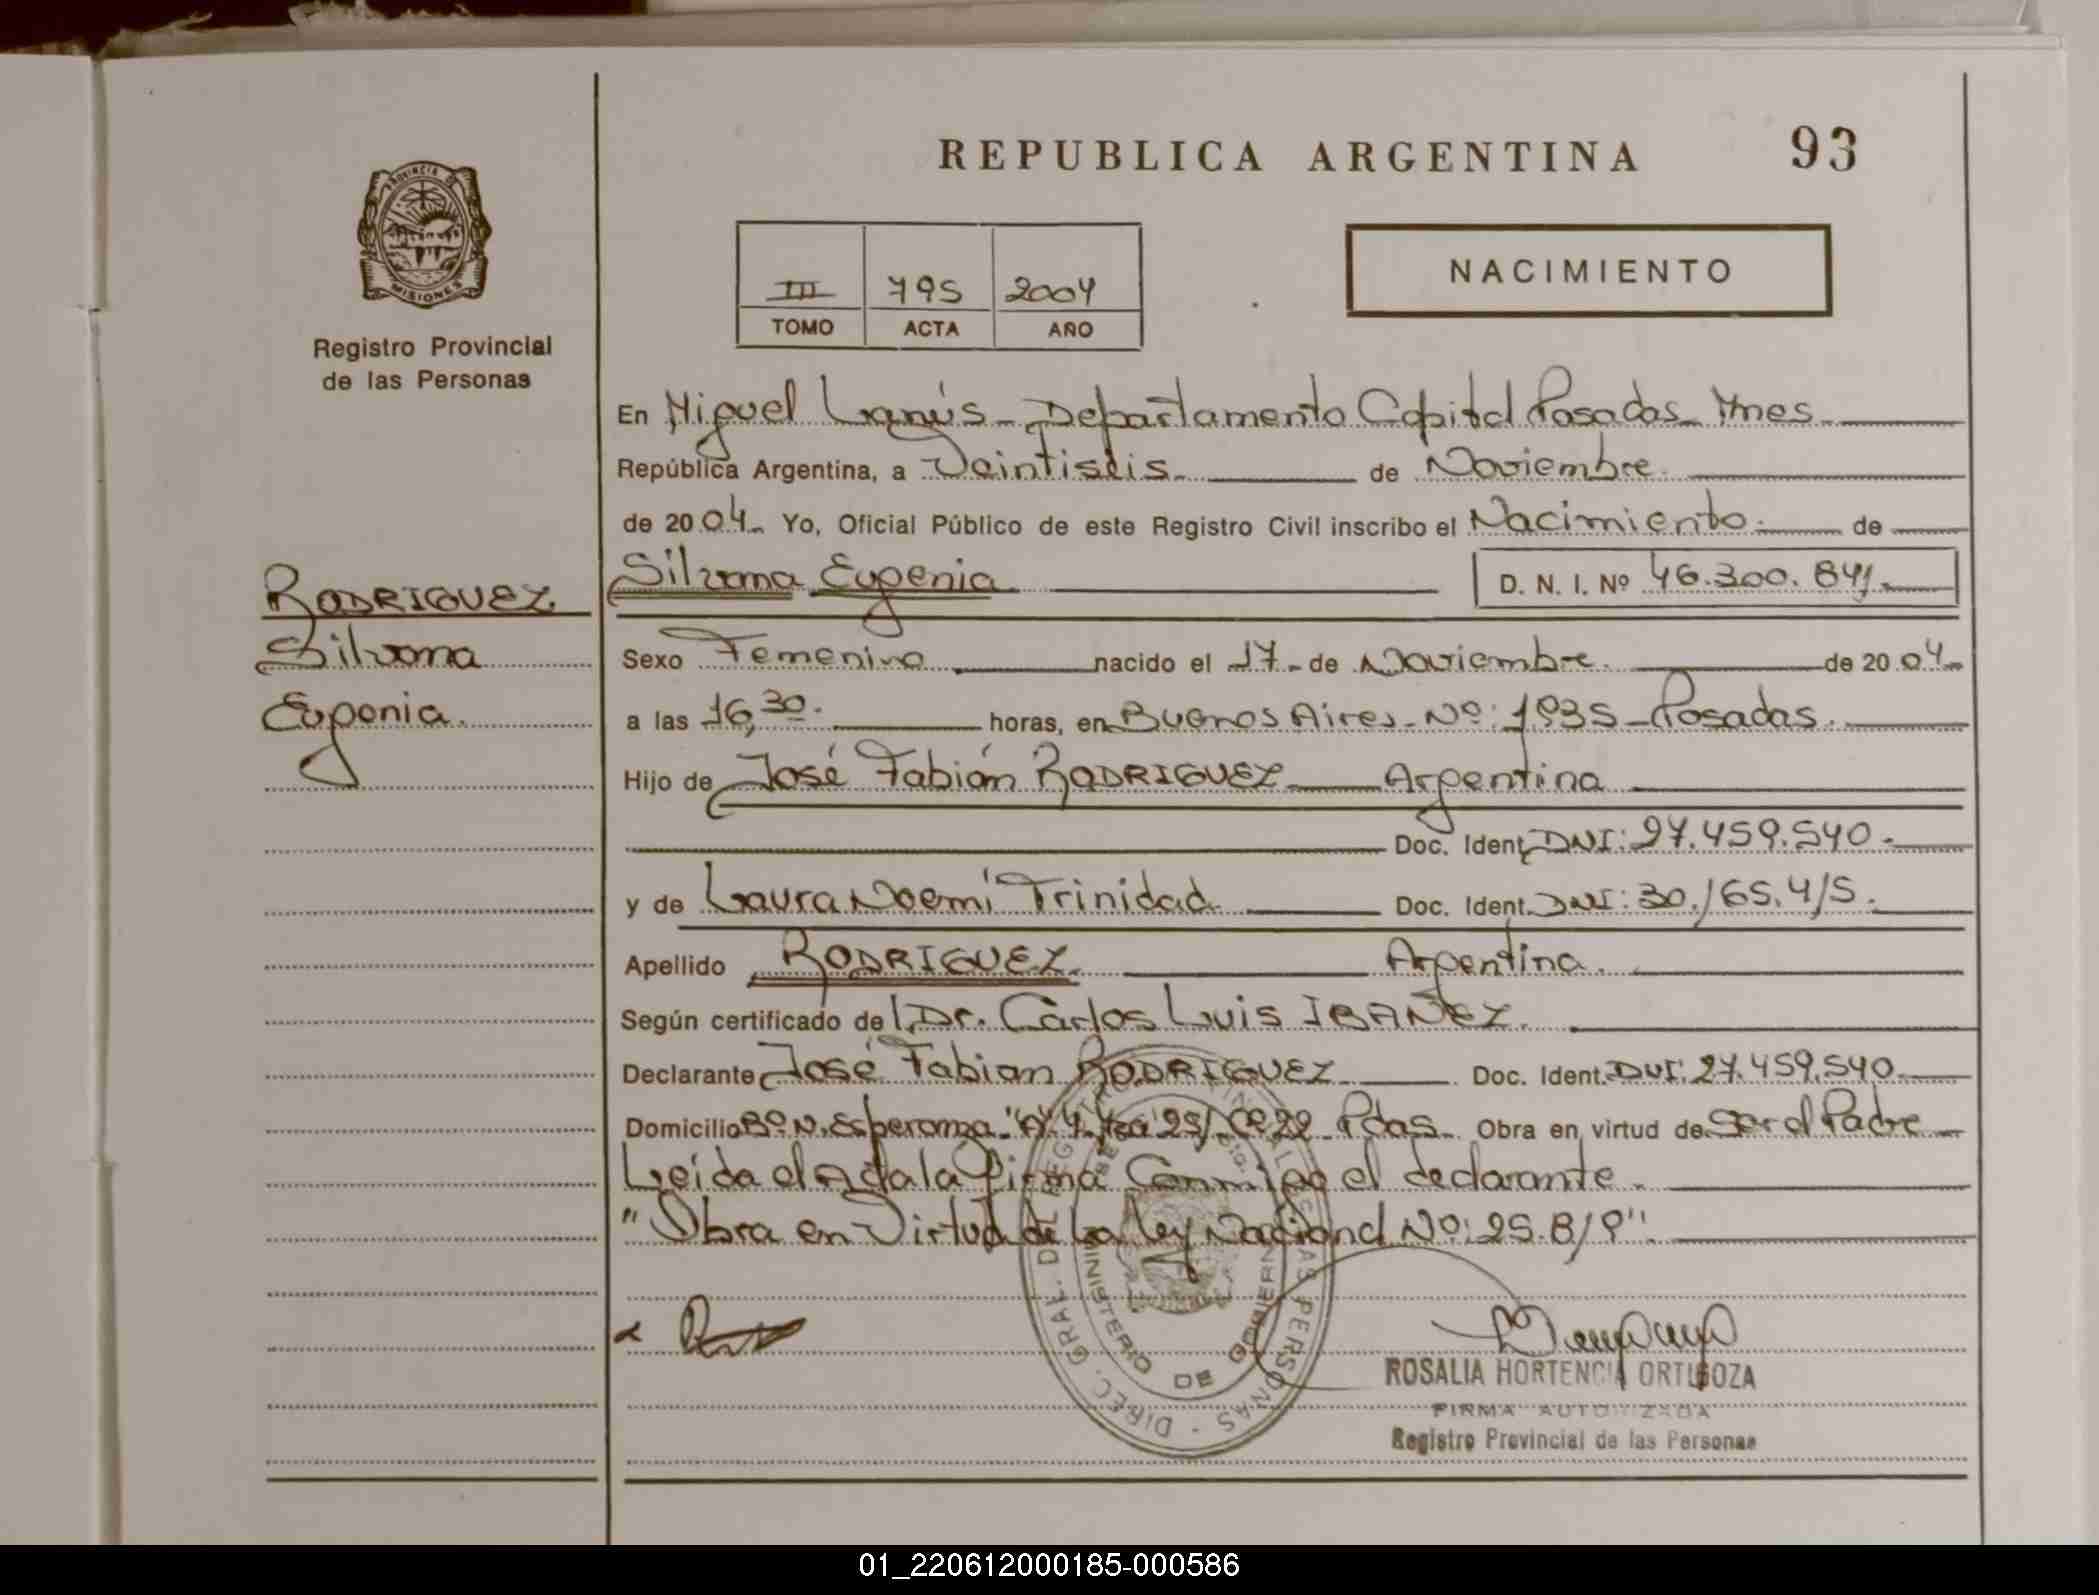 REPUBLICA ARGENTINA 93
PROVINCIA DE
MISIONES
Registro Provincial
de las Personas
III 795 2004
TOMO ACTA AÑO
NACIMIENTO
En Miguel Lanús - Departamento Capital Posadas Mnes
República Argentina, a Veintiséis de Noviembre
de 2004 Yo, Oficial Público de este Registro Civil inscribo el Nacimiento de
Silvana Eugenia D. N. I. Nº 46.300.841
RODRIGUEZ
Silvana
Eugenia
Sexo Femenino nacido el 17 de Noviembre de 2004
a las 16,30 horas, en Buenos Aires - Nº: 1935 - Posadas
Hijo de José Fabián RODRIGUEZ Argentina
Doc. Ident. DNI: 27.459.540
y de Laura Noemí Trinidad Doc. Ident. DNI: 30.165.415
Apellido RODRIGUEZ Argentina
Según certificado del Dr. Carlos Luis IBAÑEZ
Declarante José Fabian RODRIGUEZ Doc. Ident. DNI: 27.459.540
Domicilio Bº N. Esperanza "A" 4 Mza 25/ Cª 22 Pdas Obra en virtud de Ser el Padre
Leída el Acta la firma Conmigo el declarante
"Obra en Virtud de La Ley Nacional Nº: 25.819"
DIREC. GRAL. DEL REGISTRO PROVINCIAL DE LAS PERSONAS
MINISTERIO DE GOBIERNO
ROSALIA HORTENCIA ORTIGOZA
FIRMA AUTORIZADA
Registro Provincial de las Personas
01_220612000185-000586